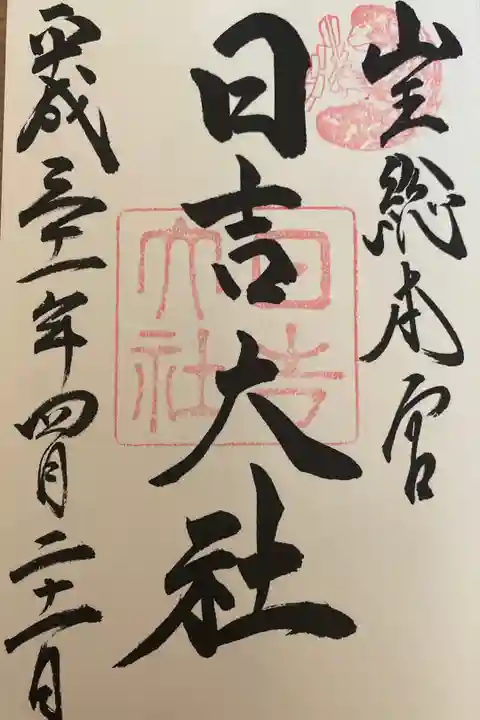 山王総本宮
日吉大社
日吉大社
平成三十一年四月二十一日